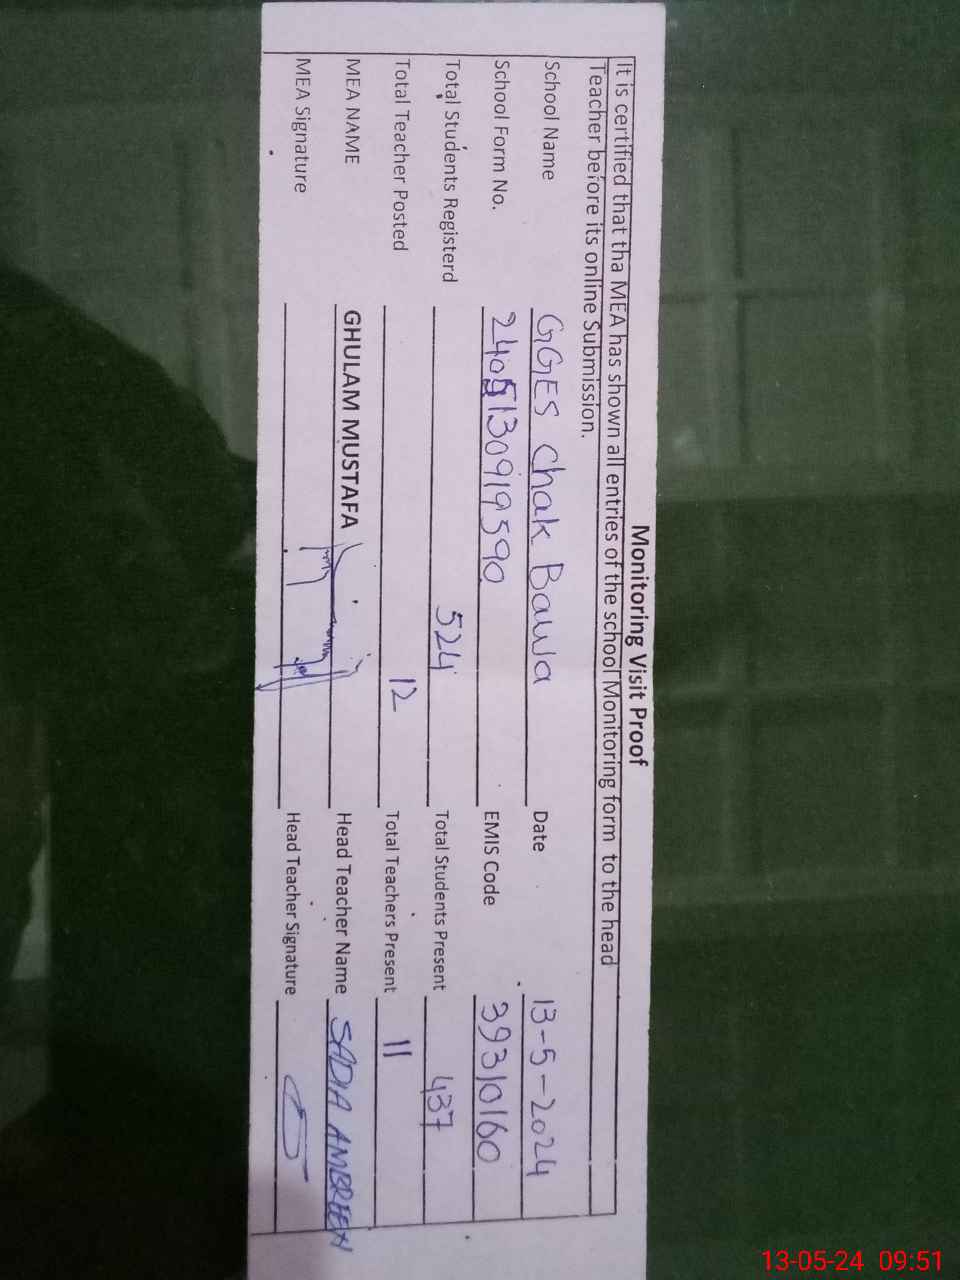 Monitoring Visit Proof
It is certified that tha MEA has shown all entries of the school Monitoring form to the head
Teacher before its online Submission.
School Name GGES Chak Bawa Date 13-5-2024
School Form No. 2405130919590 EMIS Code 39310160
Total Students Registerd 524 Total Students Present 437
Total Teacher Posted 12 Total Teachers Present 11
MEA NAME GHULAM MUSTAFA Head Teacher Name SADIA AMBREEN
MEA Signature Head Teacher Signature
13-05-24 09:51